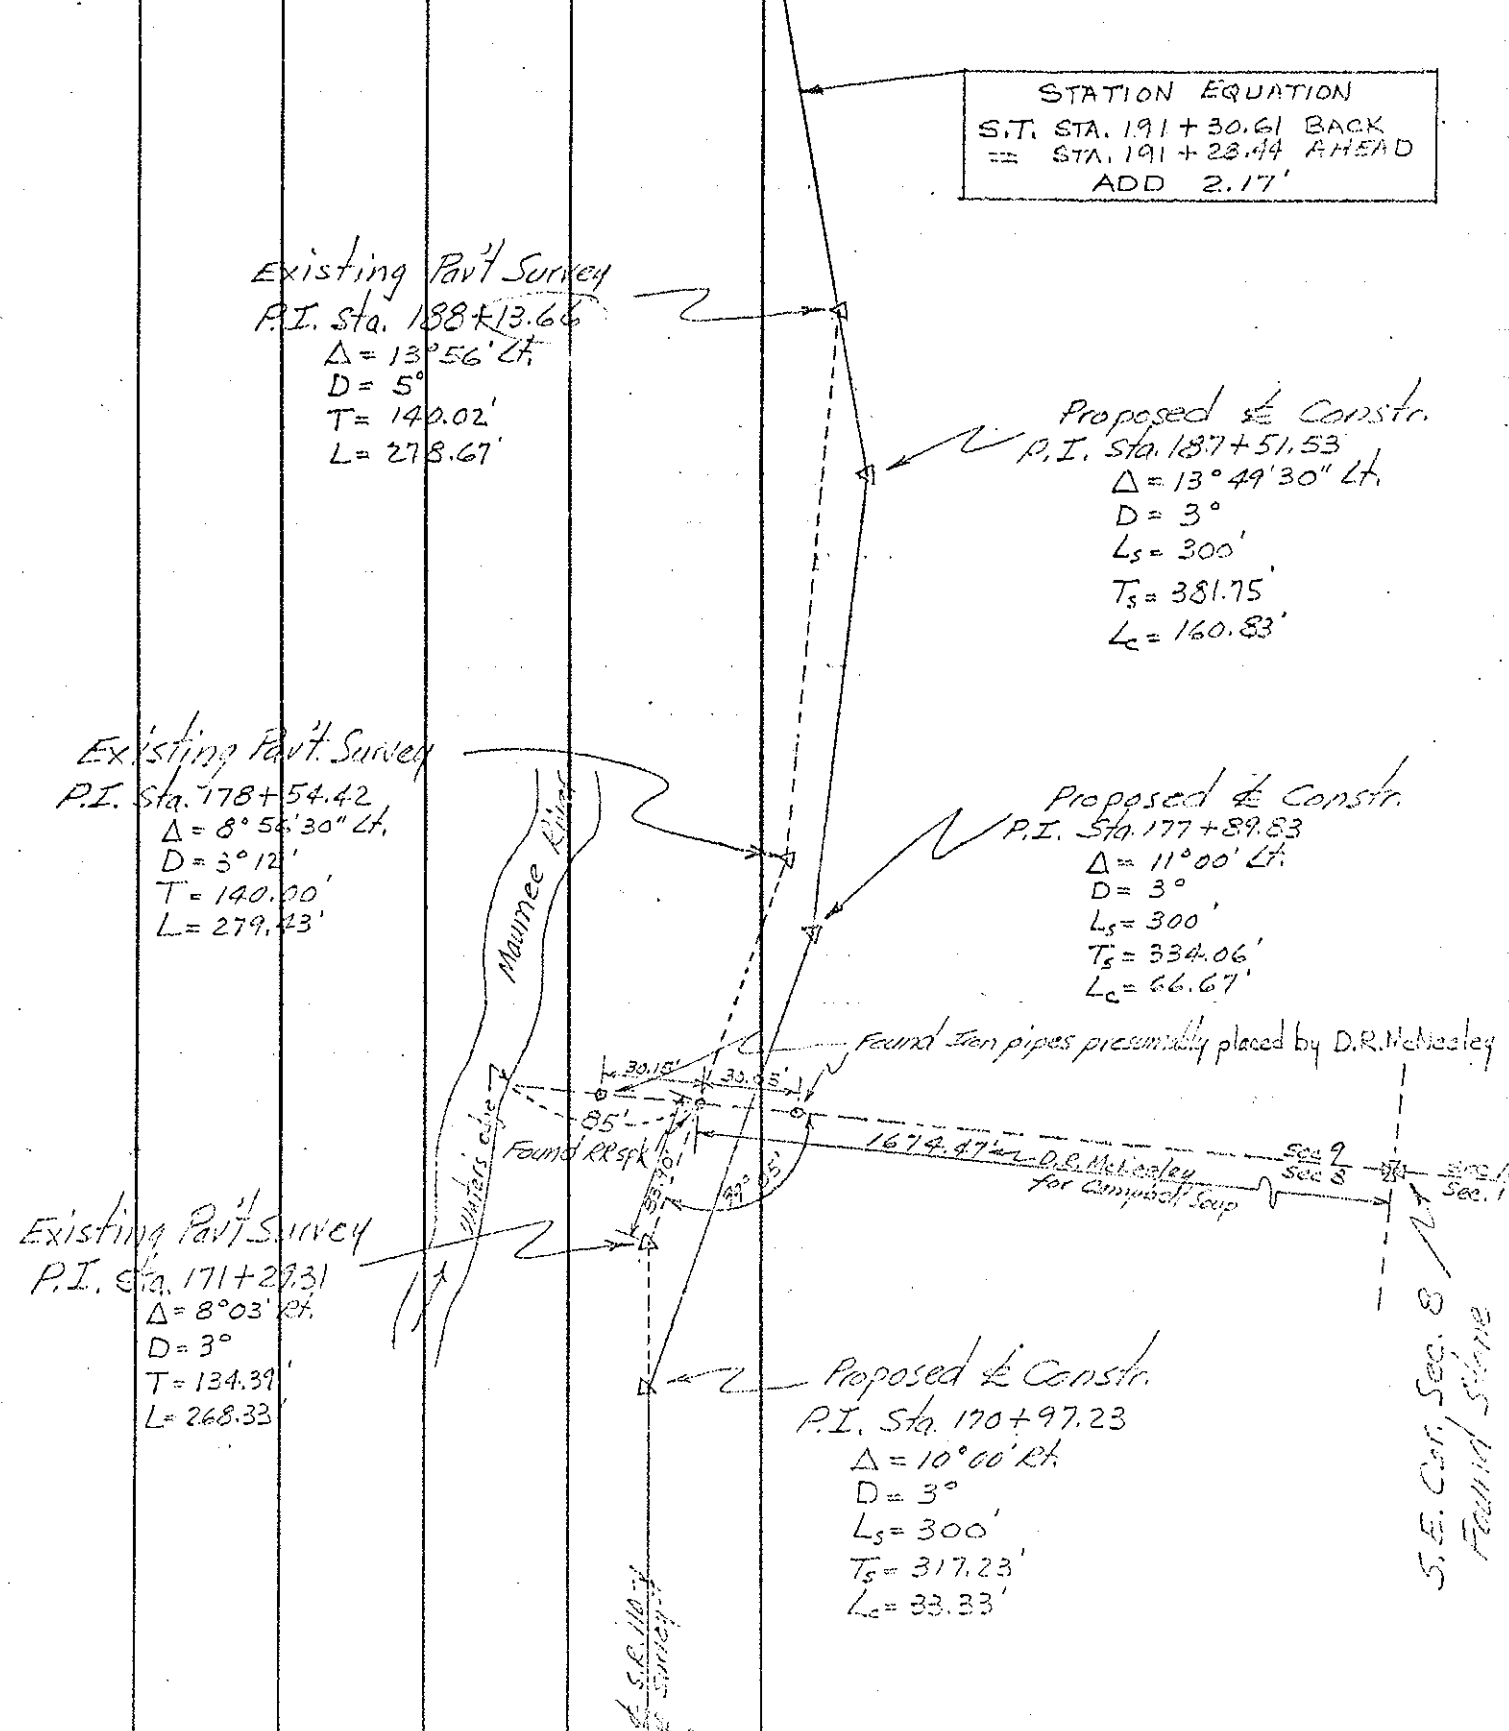 STATION EQUATION
S.T. STA. 191+30.61 BACK
= STA. 191+28.44 AHEAD
ADD 2.17'
Existing Pav't Survey
P.I. Sta. 188+13.66
Δ = 13°56' Lt.
D = 5°
T = 140.02'
L = 278.67'
Proposed ℄ Constr.
P.I. Sta. 187+51.53
Δ = 13°49'30" Lt.
D = 3°
Ls = 300'
Ts = 381.75'
Lc = 160.83'
Existing Pav't. Survey
P.I. Sta. 178+54.42
Δ = 8°56'30" Lt.
D = 3°12'
T = 140.00'
L = 279.43'
Maumee River
Proposed ℄ Constr.
P.I. Sta. 177+89.83
Δ = 11°00' Lt.
D = 3°
Ls = 300'
Ts = 334.06'
Lc = 66.67'
Found Iron pipes presumably placed by D.R. McNeeley
30.15'
85'
Found RR spk
Waters edge
1674.47'
D.R. McNeeley
for Campbell Soup
sec 9
sec 8
Existing Pav't Survey
P.I. Sta. 171+29.31
Δ = 8°03' Rt.
D = 3°
T = 134.39'
L = 268.33'
Proposed ℄ Constr.
P.I. Sta. 170+97.23
Δ = 10°00' Rt.
D = 3°
Ls = 300'
Ts = 317.23'
Lc = 33.33'
S.E. Cor. Sec. 8
Found Stone
℄ S.R. 110
Survey